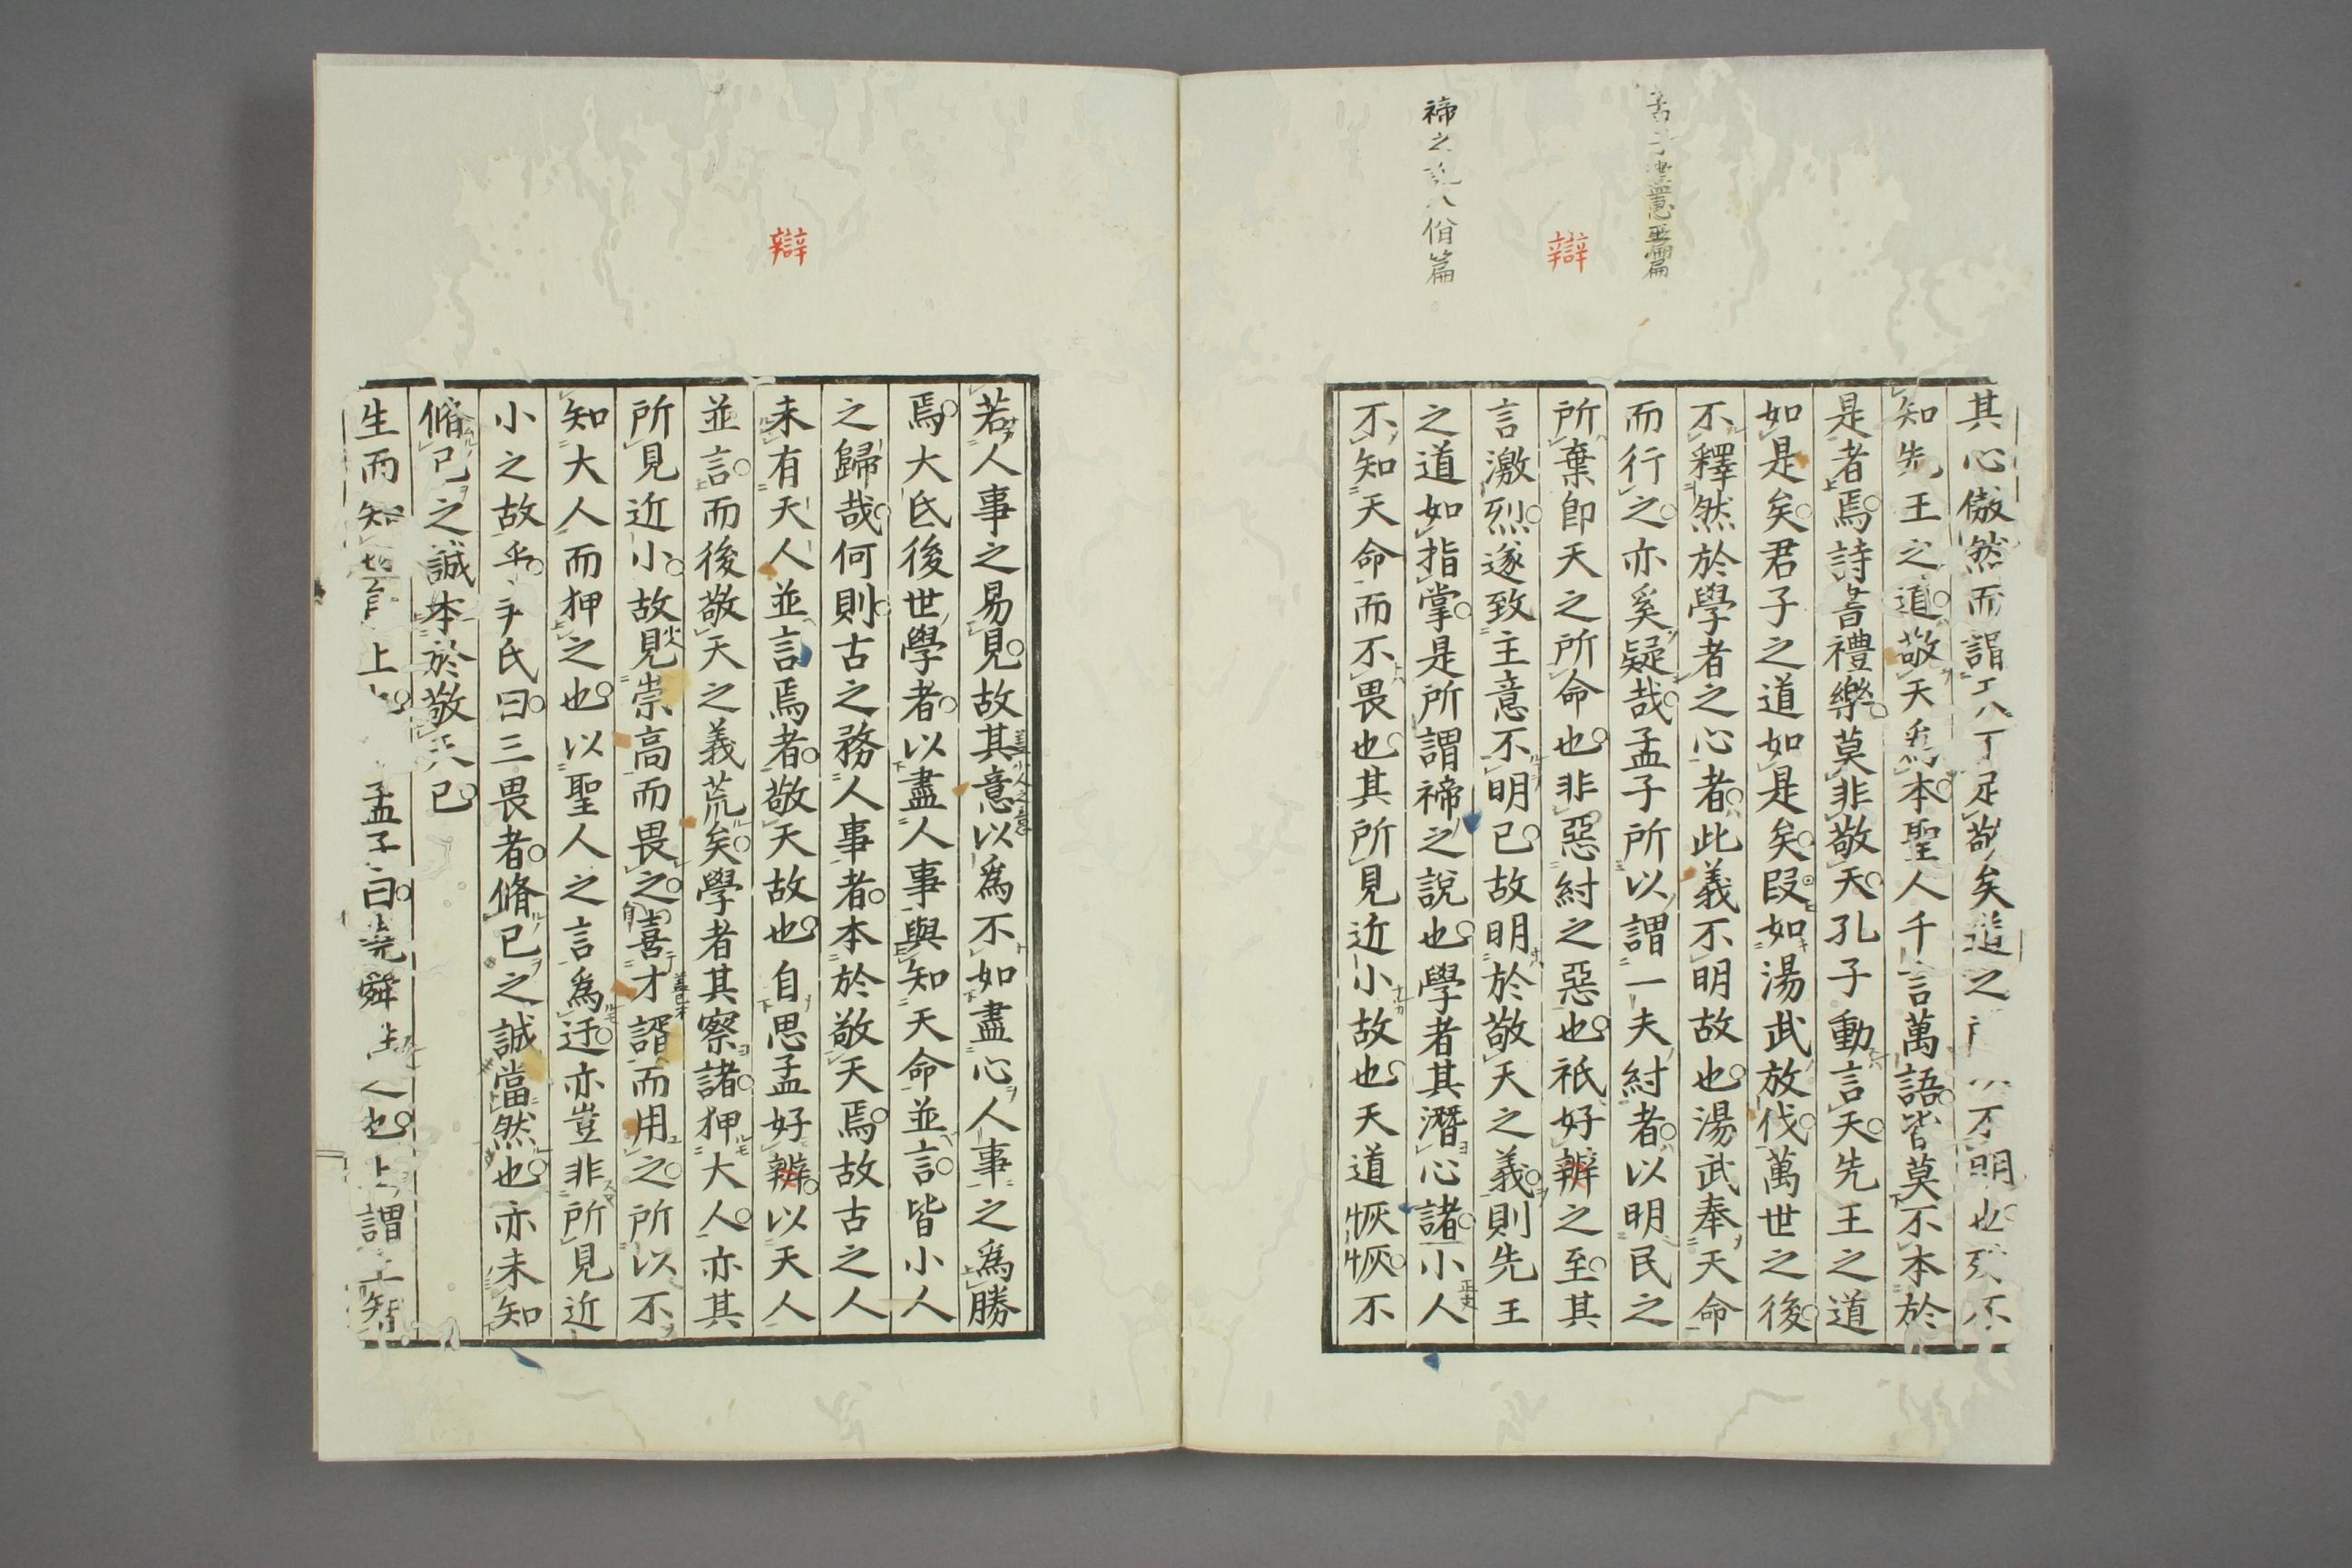 辯
禘之
篇
其心傲然而謂
矣
之
不明也
不
知先王之道敬天爲本聖人千言萬語皆莫不本於
是者焉詩書禮樂莫非敬天孔子動言天先王之道
如是矣君子之道如是矣叚如湯武放伐萬世之後
不釋然於學者之心者此義不明故也湯武奉天命
而行之亦奚疑哉孟子所以謂一夫紂者以明民之
所棄卽天之所命也非惡紂之惡也祇好辨之至其
言激烈遂致主意不明已故明於敬天之義則先王
之道如指掌是所謂禘之說也學者其潛心諸小人
不知天命而不畏也其所見近小故也天道恢恢不
辯
若人事之易見故其意以爲不如盡心人事之爲勝
焉大氐後世學者以盡人事與知天命並言皆小人
之歸哉何則古之務人事者本於敬天焉故古之人
未有天人並言焉者敬天故也自思孟好辨以天人
並言而後敬天之義荒矣學者其察諸狎大人亦其
所見近小故見崇高而畏之喜才諝而用之所以不
知大人而狎之也以聖人之言爲迂亦豈非所見近
小之故乎尹氏曰三畏者脩己之誠當然也亦未知
脩己之誠本於敬天已
生而知
上
孟子曰堯舜
也上謂上智